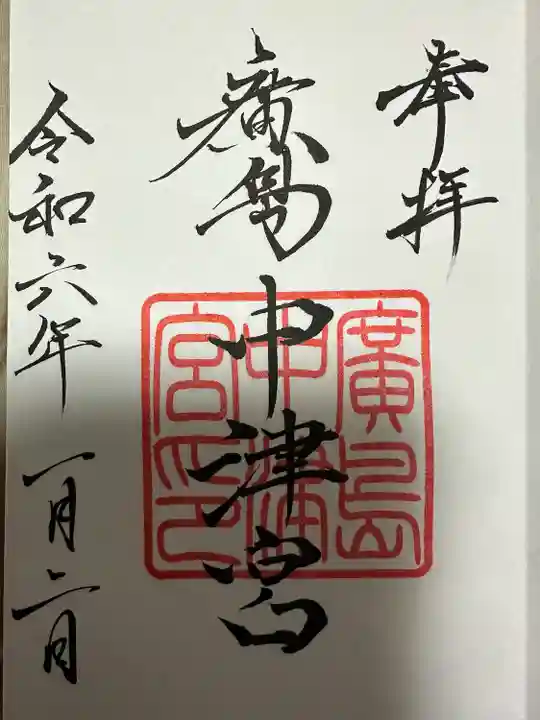 奉拝
廣島中津宮
廣島
中津
宮印
令和六年一月二日